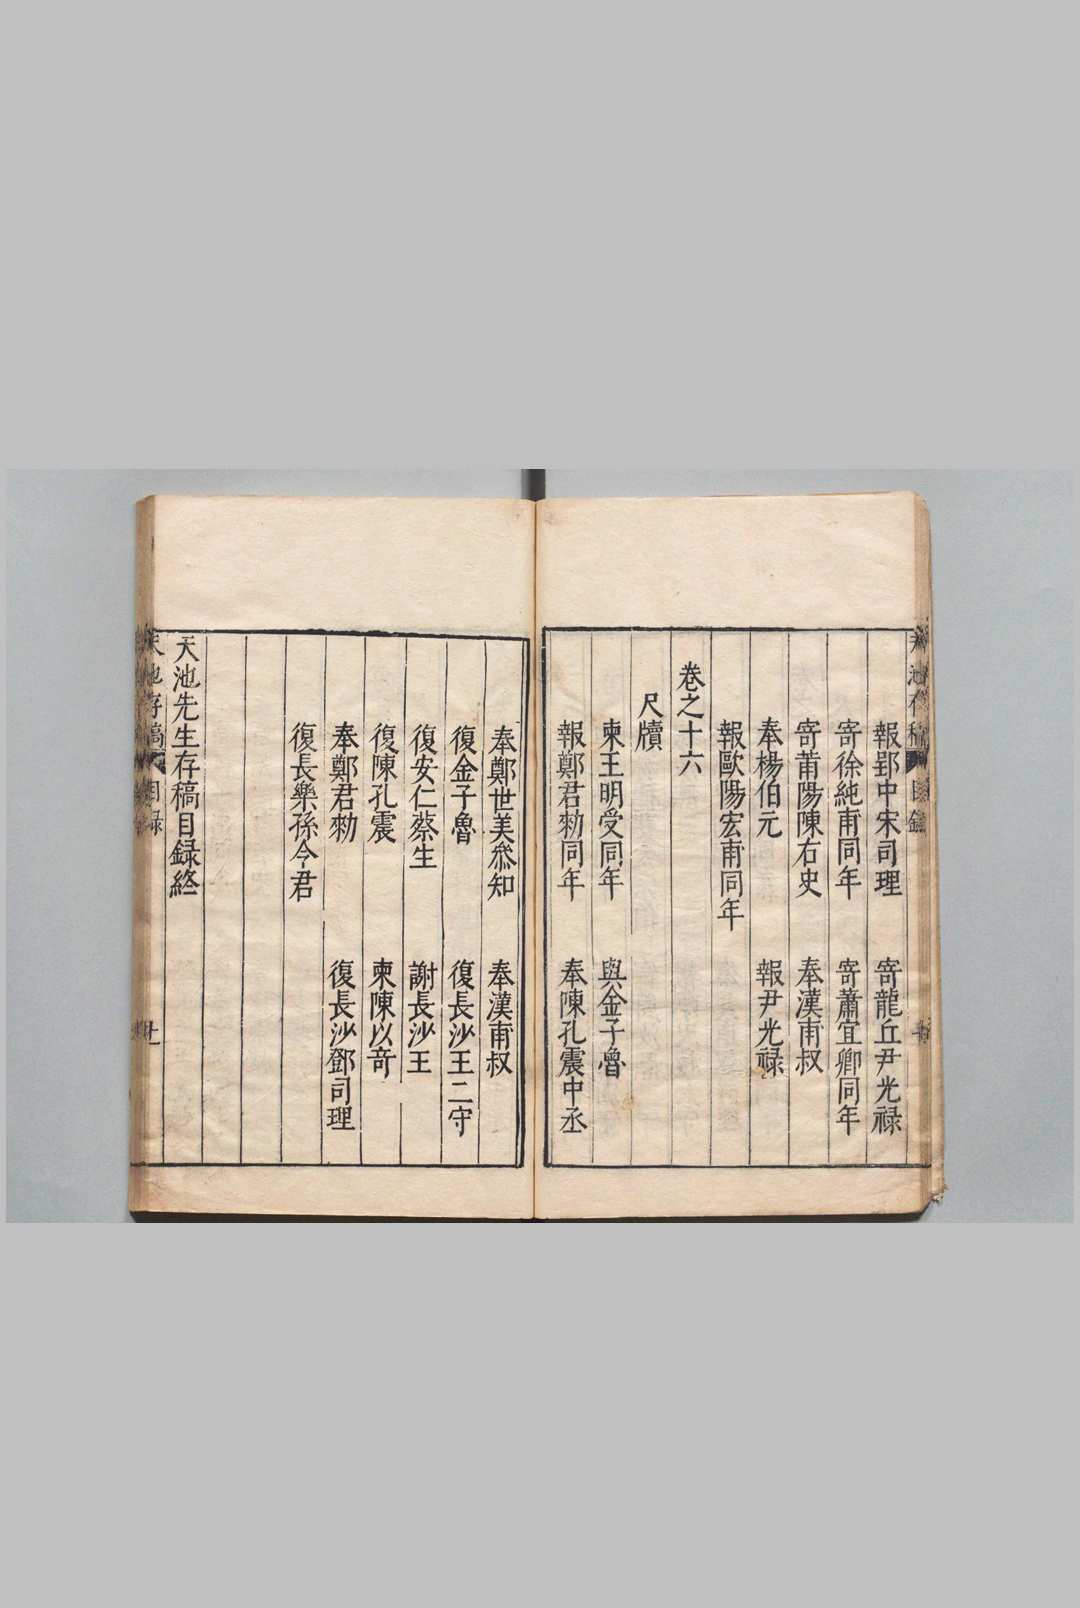 報郢中宋司理 寄龍丘尹光祿
寄徐純甫同年 寄蕭宜卿同年
寄莆陽陳右史 奉漢甫叔
奉楊伯元 報尹光祿
報歐陽宏甫同年
卷之十六
尺牘
柬王明受同年 與金子魯
報鄭君勑同年 奉陳孔震中丞
奉鄭世美叅知 奉漢甫叔
復金子魯 復長沙王二守
復安仁蔡生 謝長沙王
復陳孔震 柬陳以竒
奉鄭君勑 復長沙鄧司理
復長樂孫令君
天池先生存稿目録終